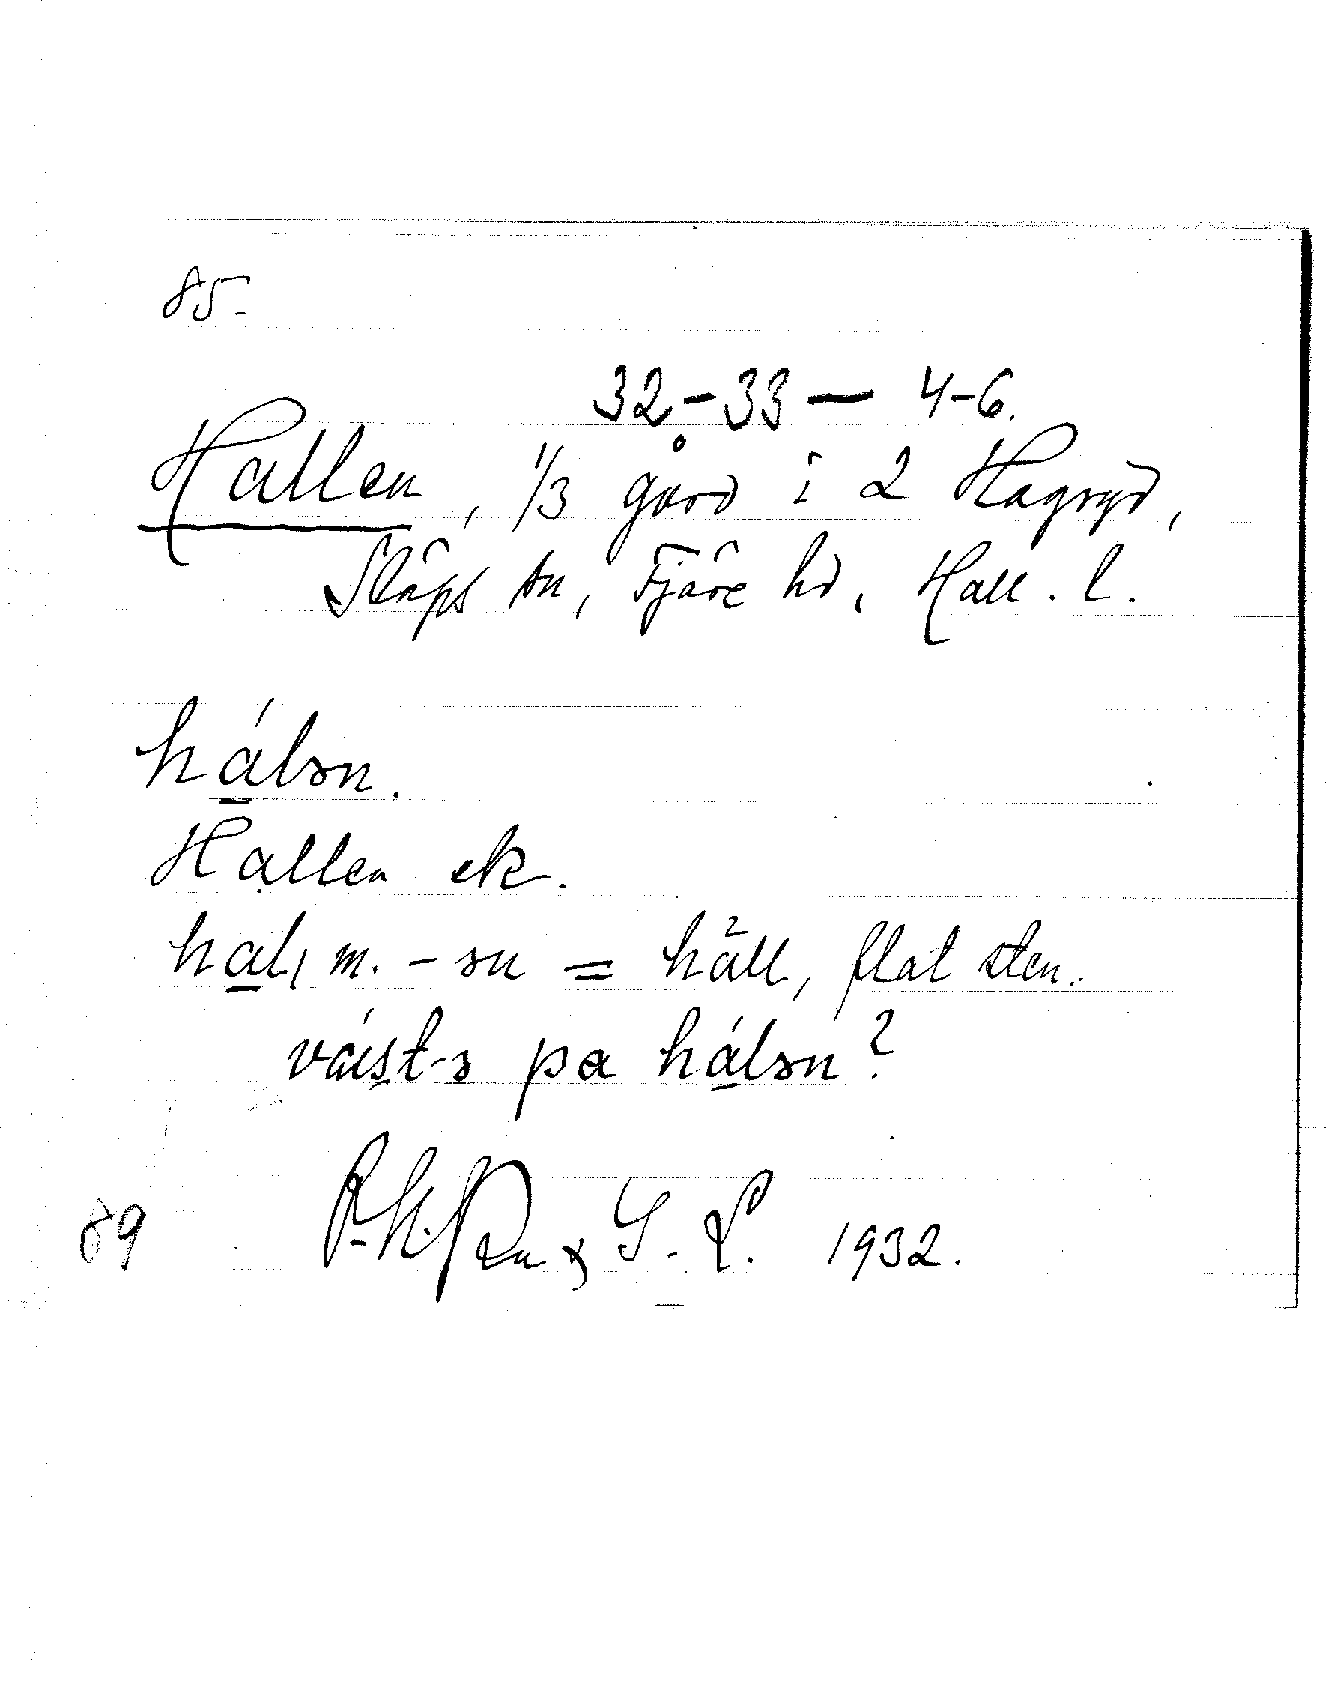 85-
32-33 — 4-6.
Hallen, 1/3 gård i 2 Hagryd,
Släps sn, Fjäre hd, Hall. l.
hálən.
Hallen ek.
hal, m. -ən = häll, flat sten.
pa hálən?
89 S. L. 1932.